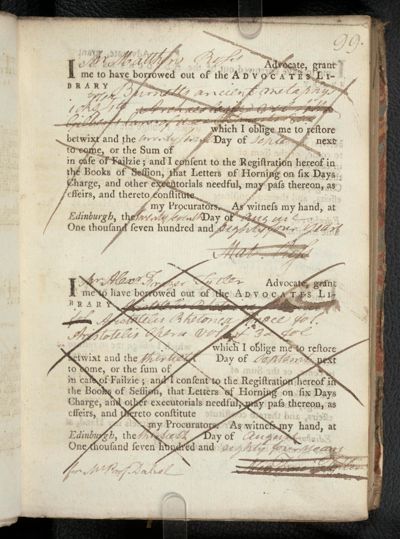 99.
I Mr Matthew Ross Advocate, grant
me to have borrowed out of the ADVOCATES LI-
BRARY
Burnetts ancient metaphy-
which I oblige me to reſtore
betwixt and the Day of Septr next
to come, or the Sum of
in caſe of Failzie; and I conſent to the Regiſtration hereof in
the Books of Seſſion, that Letters of Horning on ſix Days
Charge, and other executorials needful, may paſs thereon, as
effeirs, and thereto conſtitute
my Procurators. As witneſs my hand, at
Edinburgh, the Day of August
One thouſand ſeven hundred and eighty four Years
Mat. Ross
I Mr Alexr Fraser Tytler Advocate, grant
me to have borrowed out of the ADVOCATES LI-
BRARY
Aristotelis Rhetorica
Aristotelis Opera
which I oblige me to reſtore
betwixt and the thirtieth Day of September next
to come, or the ſum of
in caſe of Failzie; and I conſent to the Regiſtration hereof in
the Books of Seſſion, that Letters of Horning on ſix Days
Charge, and other executorials needful, may paſs thereon, as
effeirs, and thereto conſtitute
my Procurators. As witneſs my hand, at
Edinburgh, the thirtieth Day of August
One thouſand ſeven hundred and eighty four Years
for Mr Prof. Dalzel